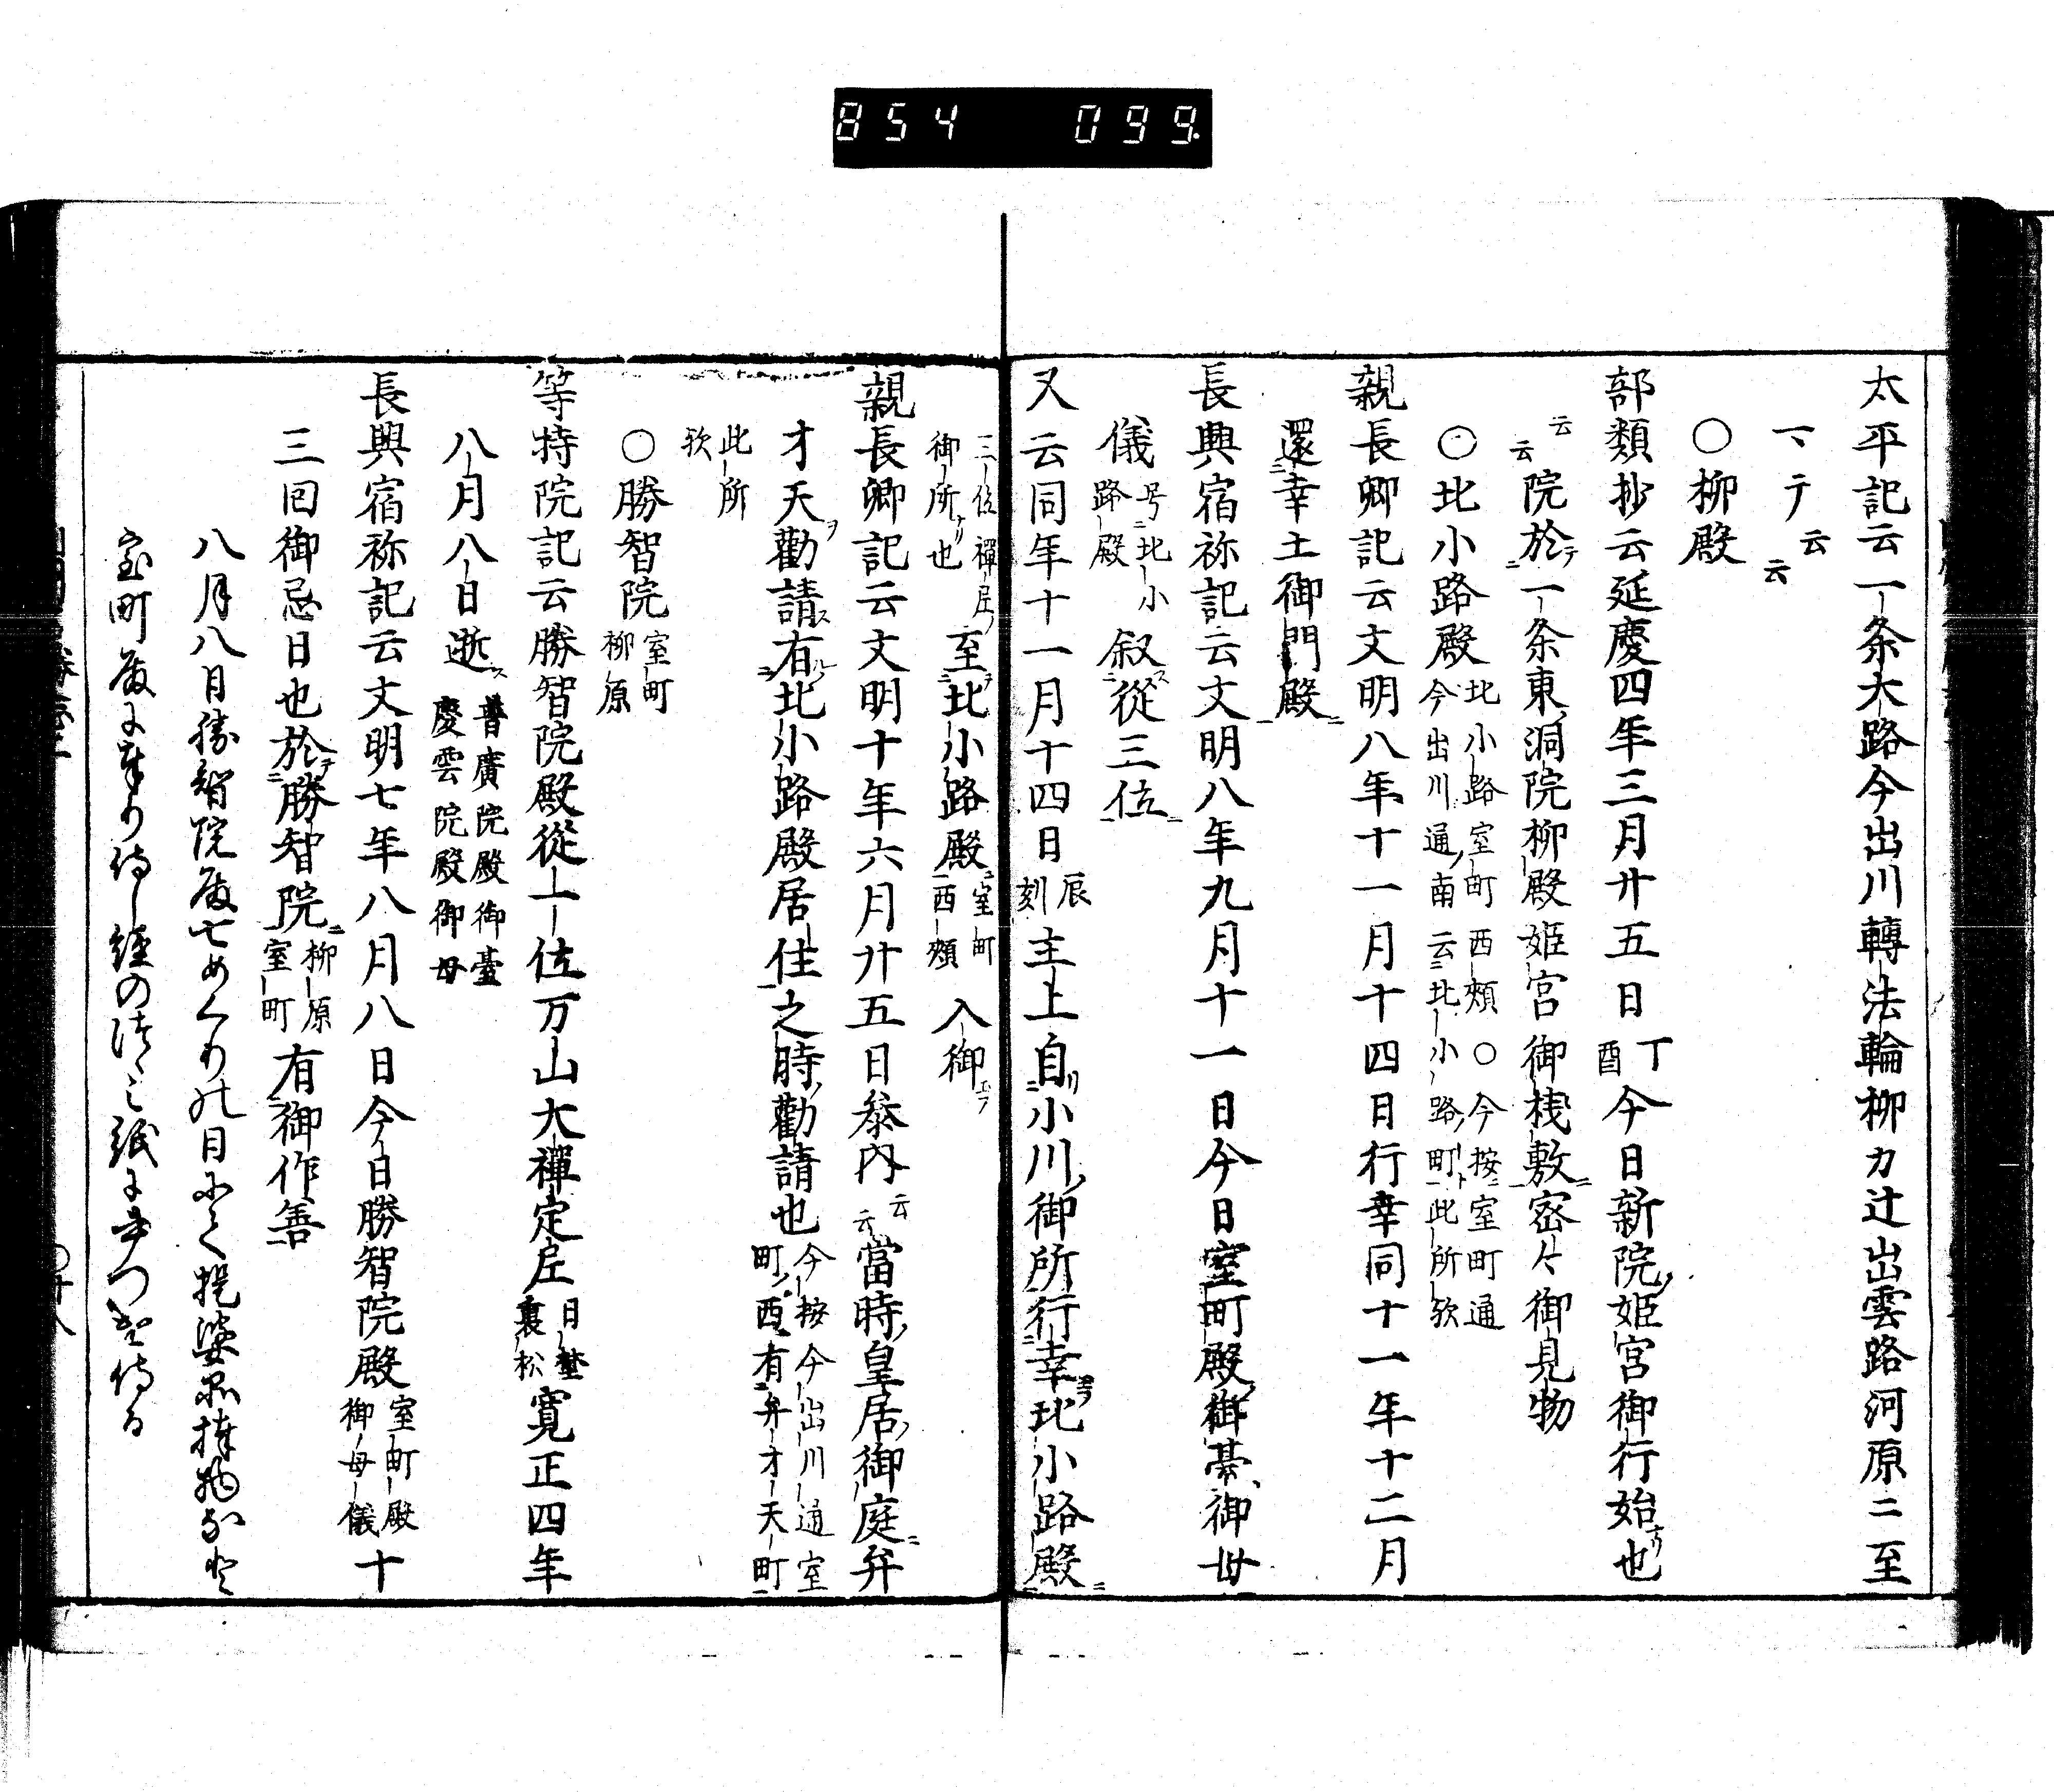 854 099
太平記云一条大路今出川轉法輪柳カ辻出雲路河原ニ至
テ云云
○柳殿
部類抄云延慶四年三月廿五日丁酉今日新院姫宮御行始也
云云院於一条東洞院柳殿姫宮御桟敷密々御見物
○北小路殿北小路室町西頬○今按室町通今出川通南云北小路町此所欤
親長卿記云文明八年十一月十四日行幸同十一年十二月
還幸土御門殿
長興宿祢記云文明八年九月十一日今日室町殿御墓御母
儀号北小路殿叙從三位
又云同年十一月十四日辰刻主上自小川御所行幸北小路殿
三位禪尼御所也至北小路殿室町西頬入御
親長卿記云文明十年六月廿五日参内云云當時皇居御庭弁
才天勸請有北小路殿居住之時勸請也今按今出川通室町西有弁才天町
此所欤
○勝智院室町柳原
等持院記云勝智院殿從一位万山大禪定尼日野裏松寛正四年
八月八日逝普廣院殿御臺慶雲院殿御母
長興宿祢記云文明七年八月八日今日勝智院殿室町殿御母儀十
三回御忌日也於勝智院柳原室町有御作善
八月八日勝智院殿七めくりの日にて提婆品捧物なと
室町殿よ